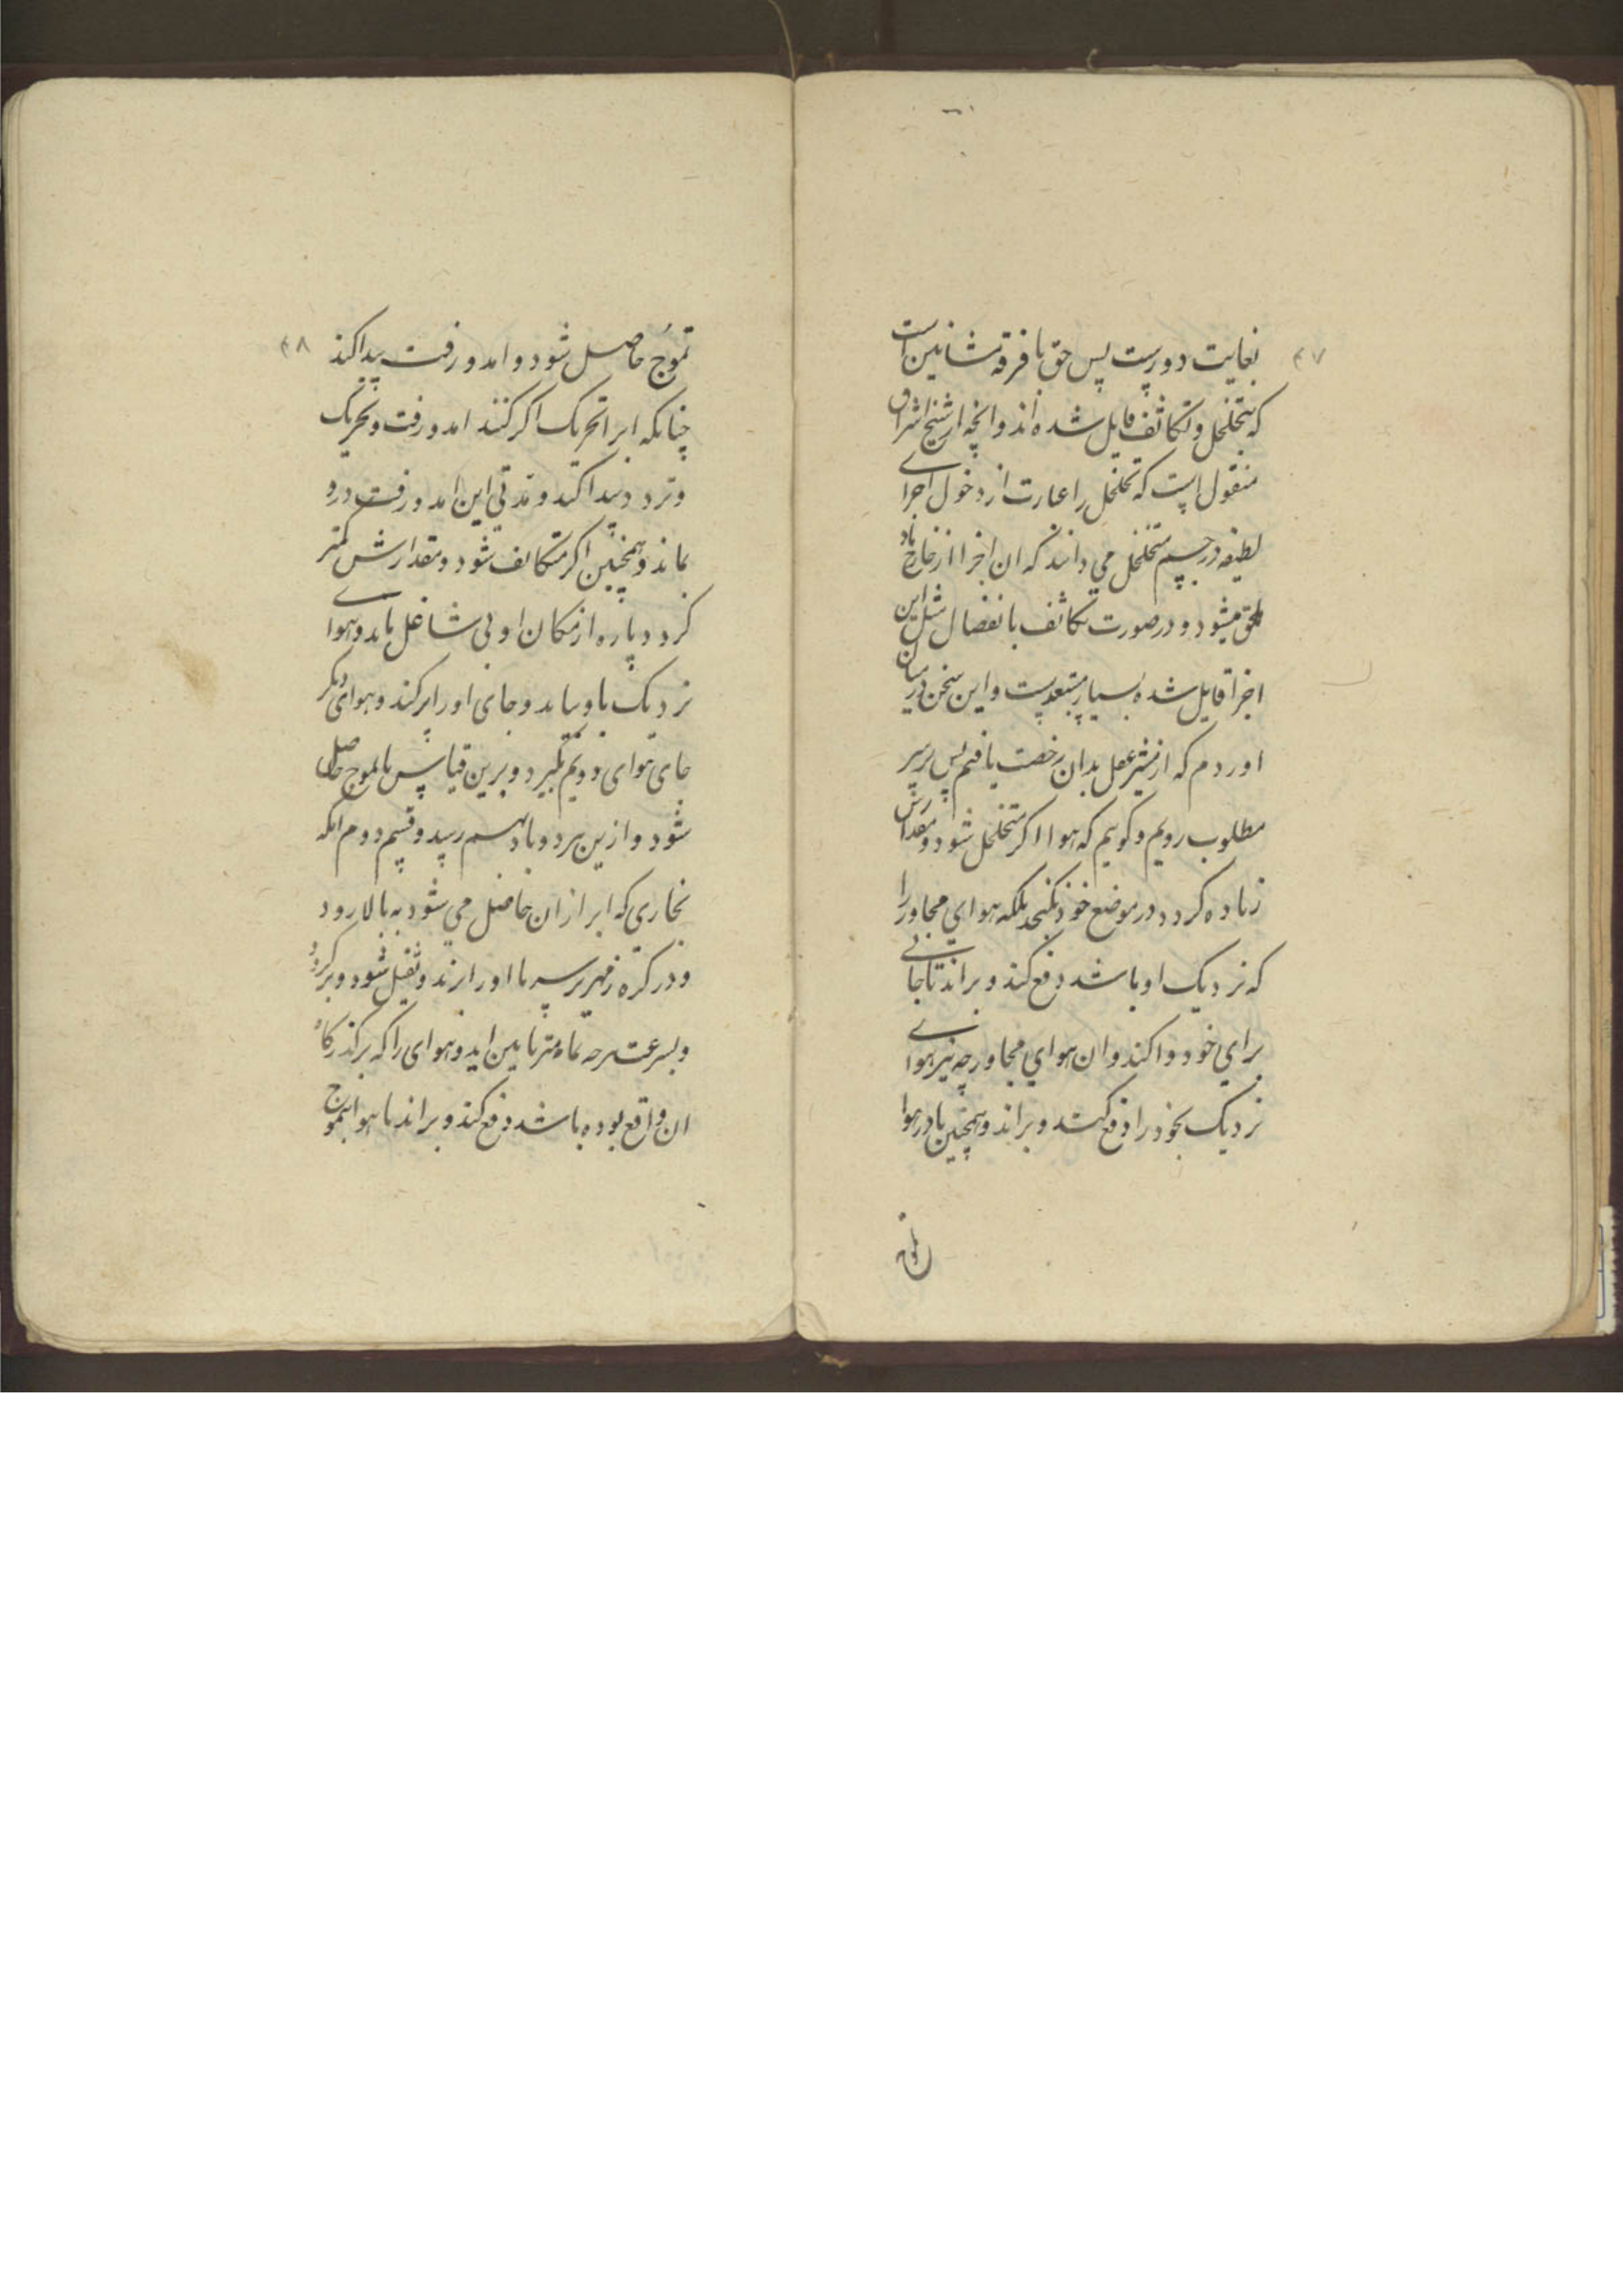 ۴۷
بغایت دورست پس حق با فرقه مشائین است
که بتخلخل و تکاثف قایل شده اند و انچه از شیخ اشراق
منقول است که تخلخل را عبارت از دخول اجزای
لطیفه در جسم متخلخل می دانند که ان اجزا از خارج باو
ملحق میشود و در صورت تکاثف بانفصال مثل این
اجزا قایل شده بسیار مستبعدست و این سخن در میان
اوردم که از مشیر عقل بدان رخصت یافتم پس بر سر
مطلوب رویم و کوییم که هوا اکر متخلخل شود و مقدارش
زیاده کردد در موضع خود نکنجد بلکه هوای مجاور را
که نزدیک او باشد دفع کند و براند تا جائی
برای خود وا کند و ان هوای مجاور چه نیز هوای
نزدیک بخود را دفع کند و براند و همچنین تا در هوا
۴۸
تموج حاصل شود و امد و رفت پیدا کند
چنانکه اب را تحریک اکر کنند امد و رفت و تحریک
و تردد پیدا کند و مدتی این امد و رفت درو
بماند و همچنین اکر متکاثف شود و مقدارش کمتر
کردد پاره از مکان او بی شاغل باید و هوای
نزدیک باو بیاید و جای او را پر کند و هوای دیکر
جای هوای دویم بکیرد و برین قیاس تا تموج حاصل
شود و ازین هر دو باد بهم رسید و قسم دوم انکه
بخاری که ابر از ان حاصل می شود به بالا رود
و در کره زمهریر سرما او را زند و ثقیل شود و برکردد
و بسرعت هرچه تمامتر پایین اید و هوای را که بر کذرکاه
ان واقع بوده باشد دفع کند و براند تا هوا بتموج